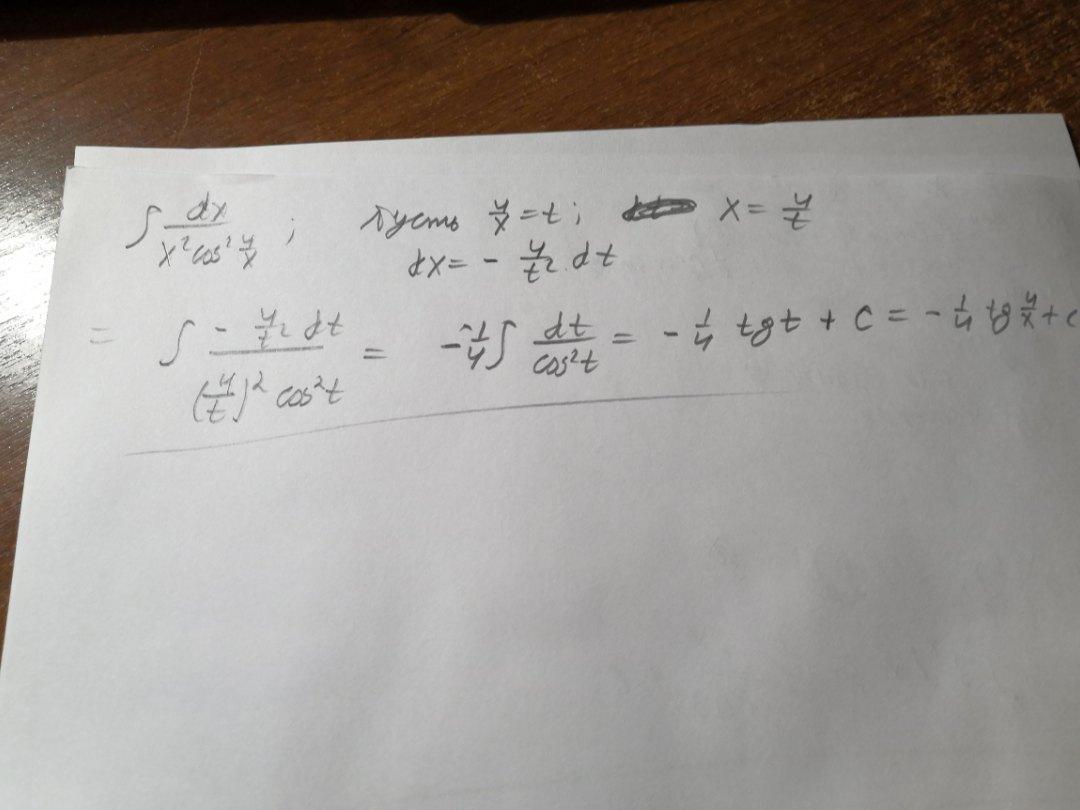 ∫ dx / x² cos² 4/x ; Пусть 4/x = t ; x = 4/t
dx = - 4/t² dt
= ∫ - 4/t² dt / (4/t)² cos²t = - 1/4 ∫ dt / cos²t = - 1/4 tg t + C = - 1/4 tg 4/x + C